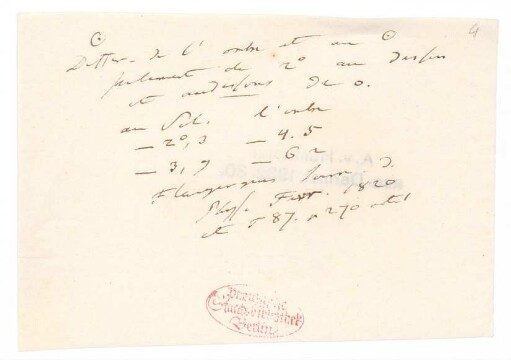 4
Differ. de l'ombre et au ☉
seulement de 2° au dessus
et au dessous de 0.
au Sol. l'ombre
— 2°,3 — 4.5
— 3,9 — 6.2
Flaugergues Journ. d.
Phys. Fevr. 1820
et p 87. p 270
Preussische
Staatsbibliothek
Berlin